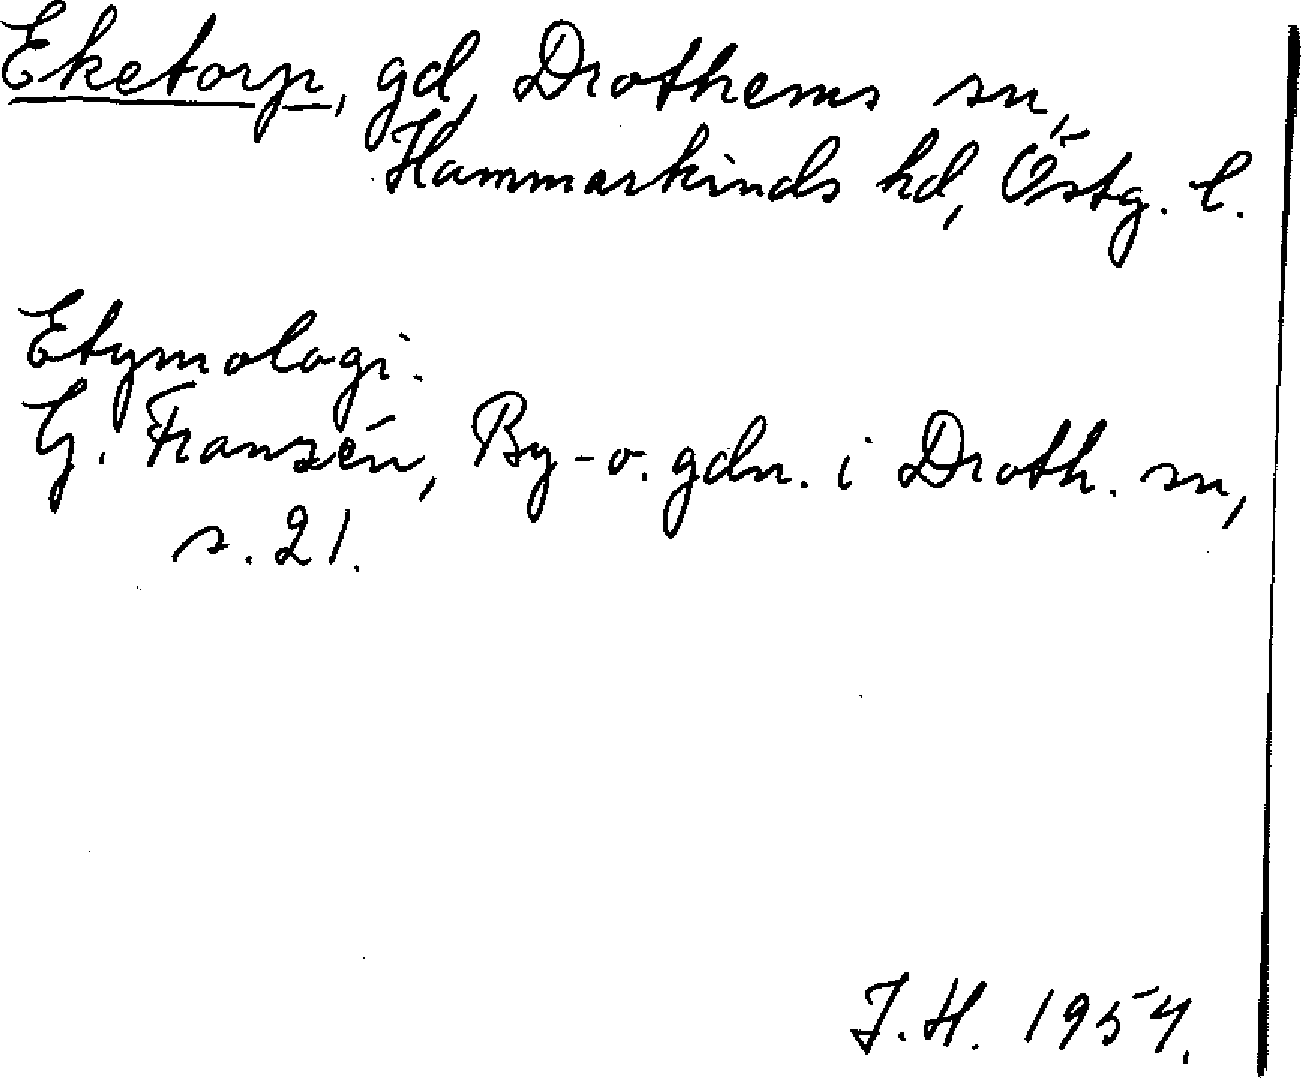 Eketorp, gd, Drothems sn,
Hammarkinds hd, Östg. l.
Etymologi.
G. Franzén, By- o. gdn. i Droth. sn,
s. 21.
J.H. 1954.